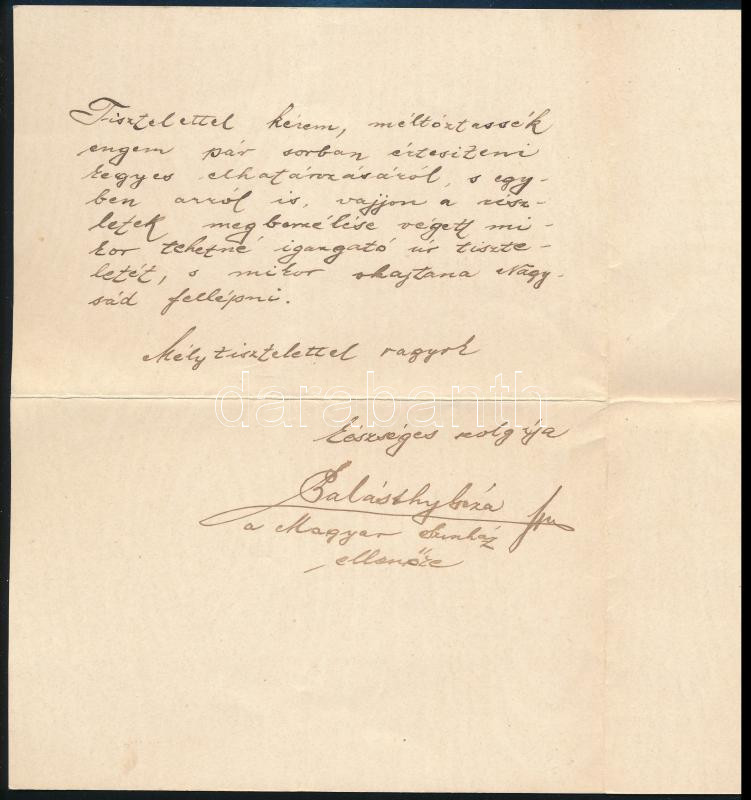 Tisztelettel kérem, méltóztassék
engem pár sorban értesiteni
kegyes elhatározásáról, s egy-
ben arról is, vajjon a rész-
letek megbeszélése végett mi-
kor tehetné igazgató úr tiszte-
letét, s mikor ohajtana Nagy-
sád fellépni.
Mély tisztelettel vagyok
darabanth
készséges szolgája
Balásthy Géza
a Magyar Szinház
ellenőre